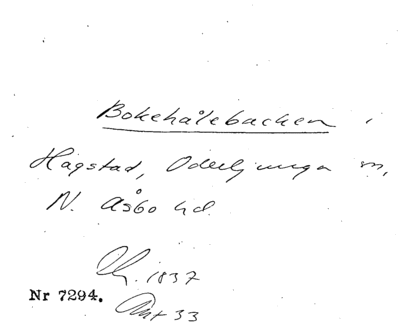 Bokehålebacken,
Hågstad, Oderljunga sn,
N. Åsbo hd.
Ch. 1837
Nr 7294.
Akt 33